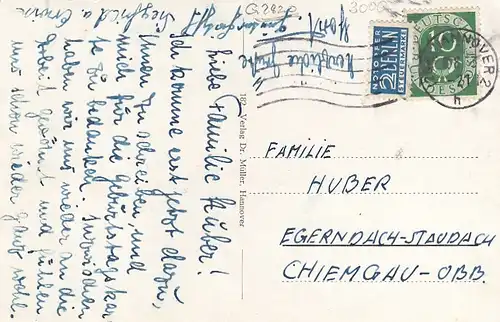 Liebe Familie Huber!
Ich komme erst jetzt dazu,
Ihnen zu schreiben und
mich für die Geburtstagskar-
te zu bedanken. Inzwischen
haben wir uns wieder an die
Arbeit gewöhnt und fühlen
uns schon wieder ganz wohl.
Herzliche Grüße
Siegfried u.
182 Verlag Dr. Müller, Hannover
NOTOPFER
2 BERLIN
STEUERMARKE
DEUTSCHE
10
HANNOVER 2
FAMILIE
HUBER
EGERNDACH-STAUDACH
CHIEMGAU-OBB.